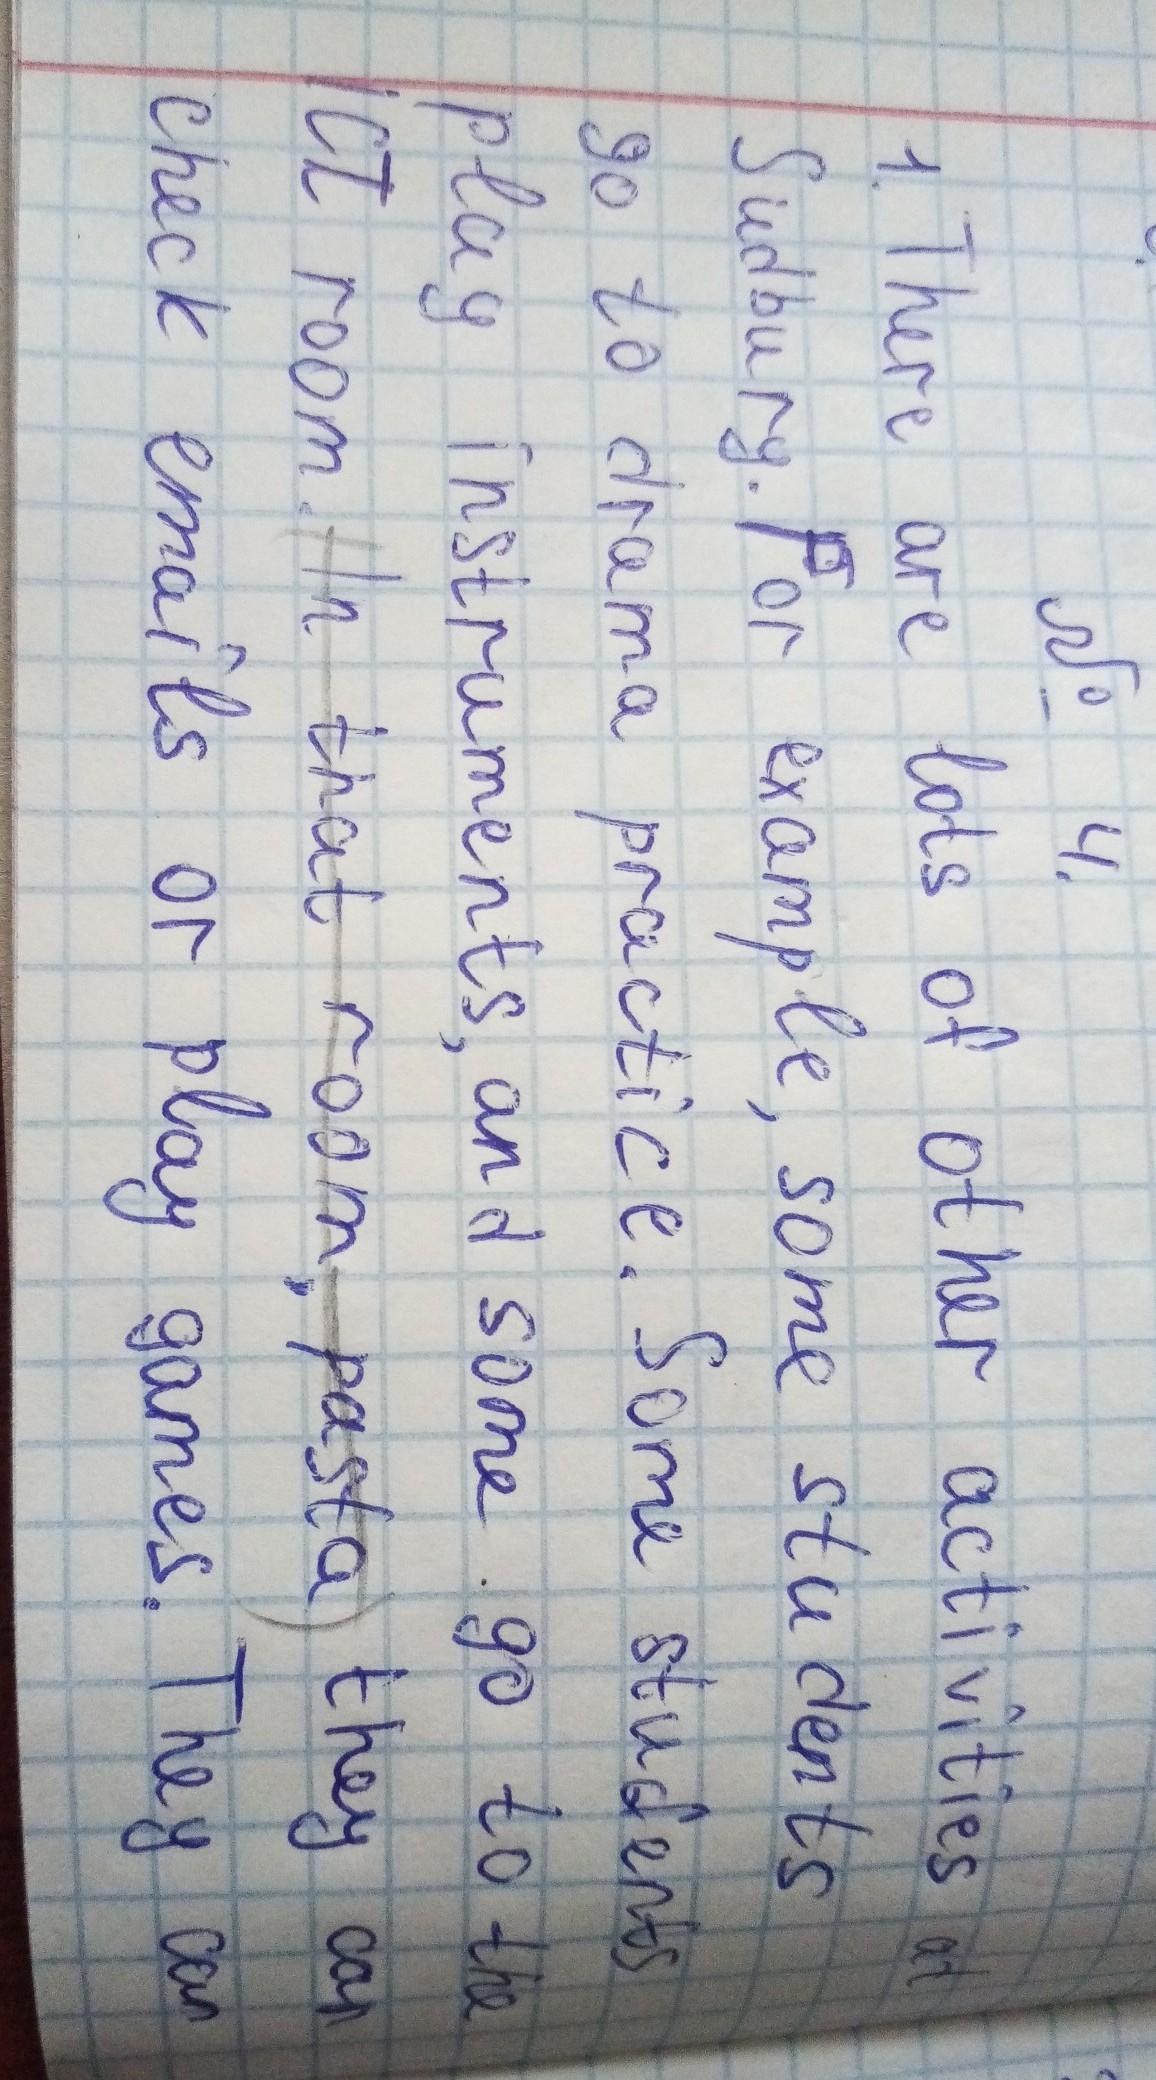 № 4.
1. There are lots of other activities at
Sudbury. For example, some students
go to drama practice. Some students
play instruments, and some go to the
ICT room. In that room, pasta) they can
check emails or play games. They can